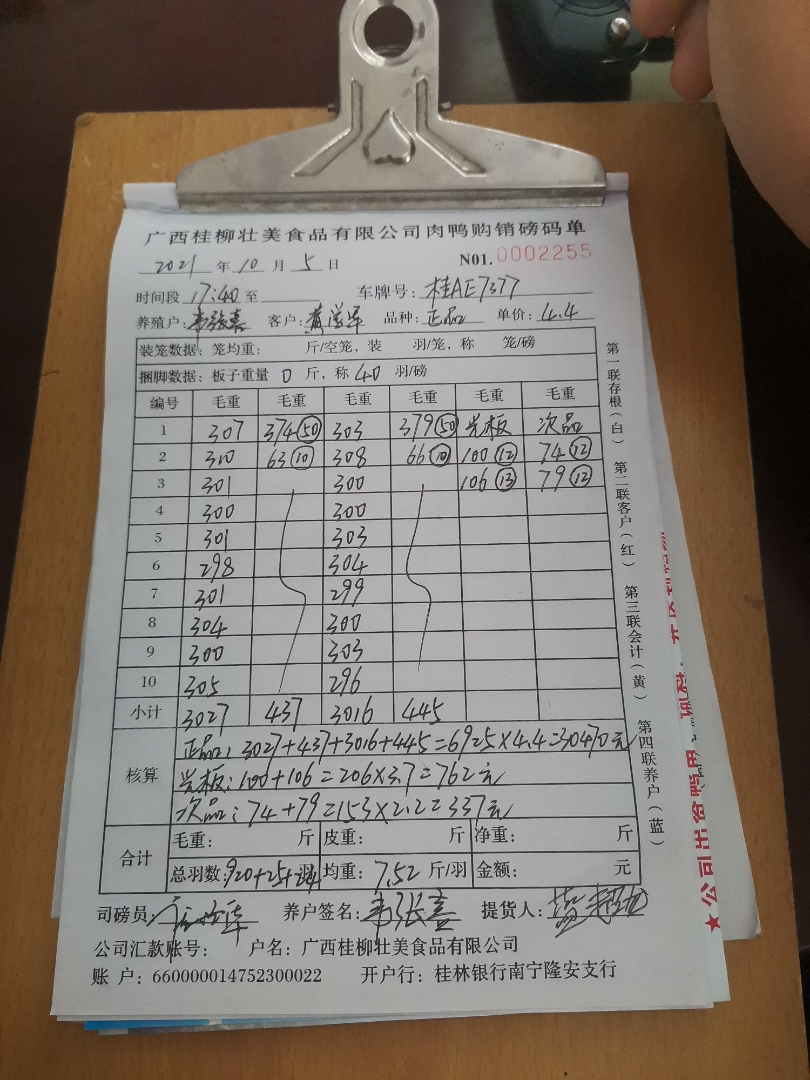 广西桂柳壮美食品有限公司肉鸭购销磅码单
2021 年 10 月 5 日 N01. 0002255
时间段 17:40 至 车牌号: 桂AE7377
养殖户: 韦张喜 客户: 品种: 正品 单价: 4.4
装笼数据: 笼均重: 斤/空笼, 装 羽/笼, 称 笼/磅
捆脚数据: 板子重量 0 斤, 称 40 羽/磅
编号 毛重 毛重 毛重 毛重 毛重 毛重
1 307 374(50) 303 379(50) 光板 次品
2 310 63(10) 308 66(10) 100(12) 74(12)
3 301 300 106(13) 79(12)
4 300 300
5 301 303
6 298 304
7 301 299
8 304 300
9 300 303
10 305 296
小计 3027 437 3016 445
核算
正品: 3027+437+3016+445=6925×4.4=30470元
光板: 100+106=206×3.7=762元
次品: 74+79=153×2.2=337元
合计
毛重: 斤 皮重: 斤 净重: 斤
总羽数: 920+25+24 羽 均重: 7.52 斤/羽 金额: 元
司磅员: 养户签名: 韦张喜 提货人:
公司汇款账号: 户名: 广西桂柳壮美食品有限公司
账 户: 660000014752300022 开户行: 桂林银行南宁隆安支行
第一联存根(白) 第二联客户(红) 第三联会计(黄) 第四联养户(蓝)